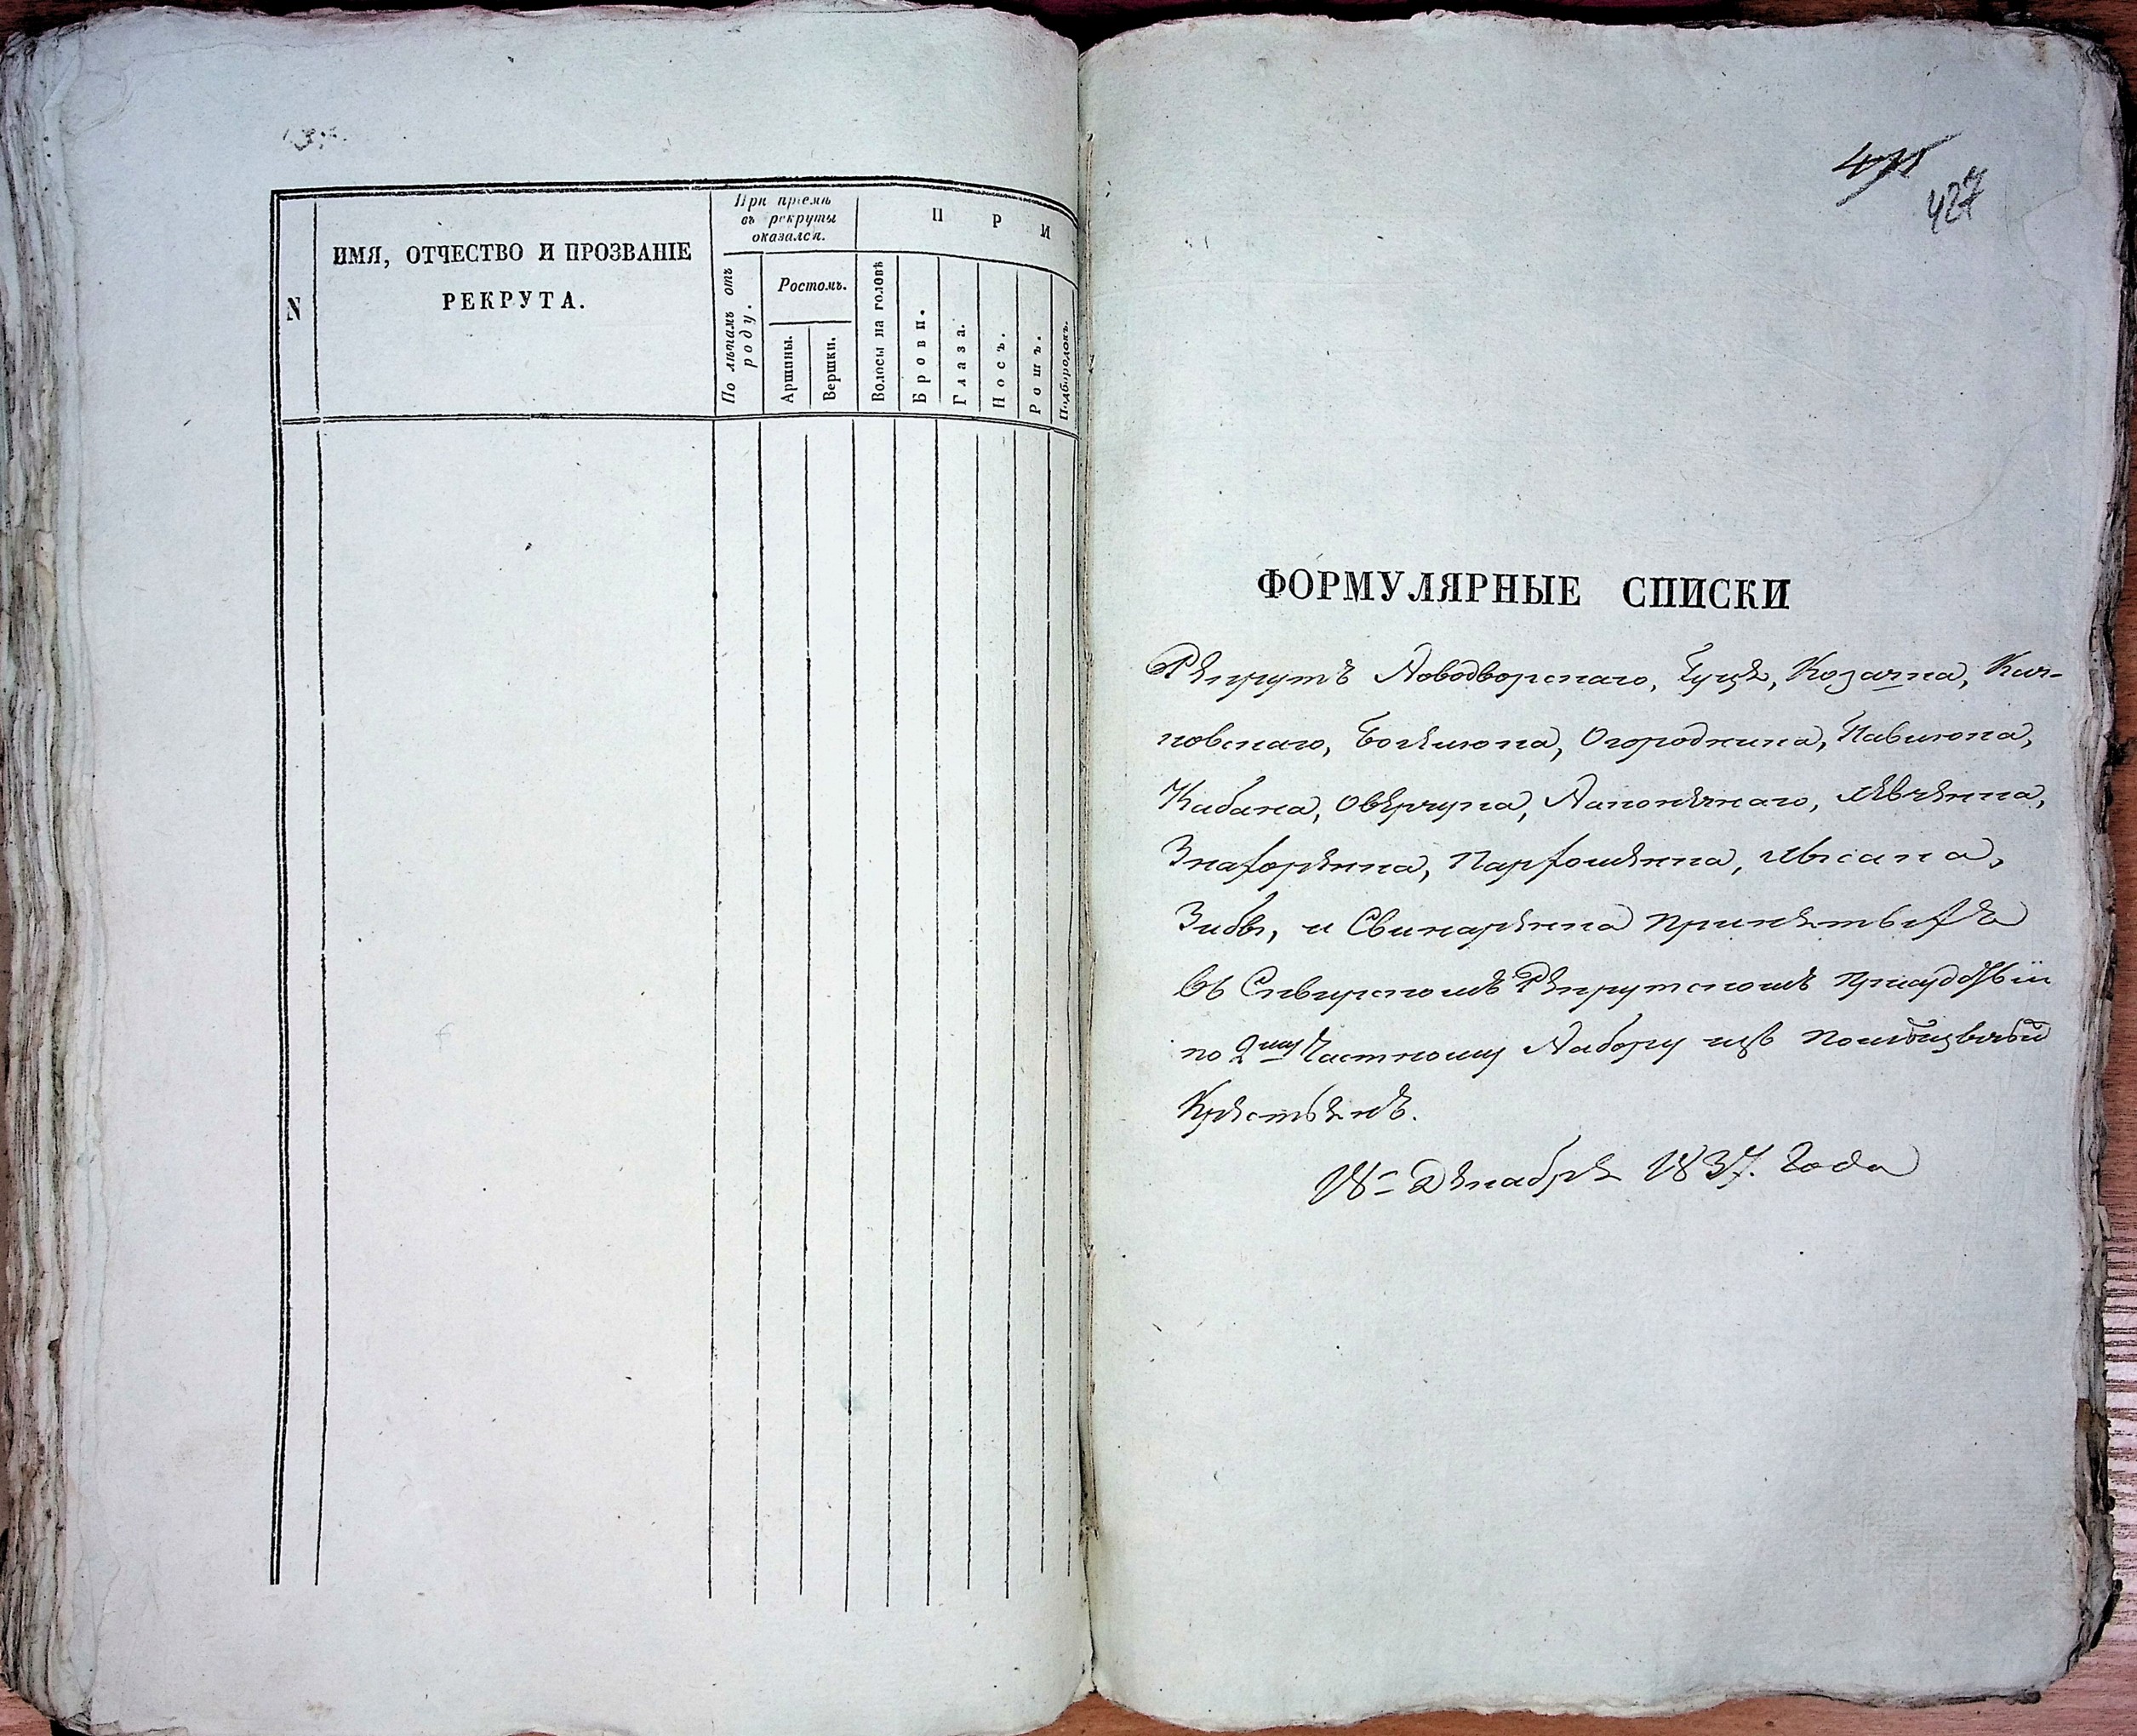 N
ИМЯ, ОТЧЕСТВО И ПРОЗВАНІЕ
РЕКРУТА.
При пріемѣ
въ рекруты
оказался.
По лѣтамъ отъ
роду.
Ростомъ.
Аршины.
Вершки.
П Р И
Волосы на головѣ
Брови.
Глаза.
Носъ.
Ротъ.
Подбородокъ.
427
ФОРМУЛЯРНЫЕ СПИСКИ
Рекрутъ Новодворскаго, Гуця, Козачка, Кич-
ковскаго, Огородника, Павлюка,
Кабана, Оверчука, Левченка,
Парфоменка, Лысака,
и Свинаренка принятыхъ
въ Сквирскомъ Рекрутскомъ присудствіи
по 2му Частному Набору изъ помѣщичьихъ
Крестьянъ.
18е Декабря 1837. Года